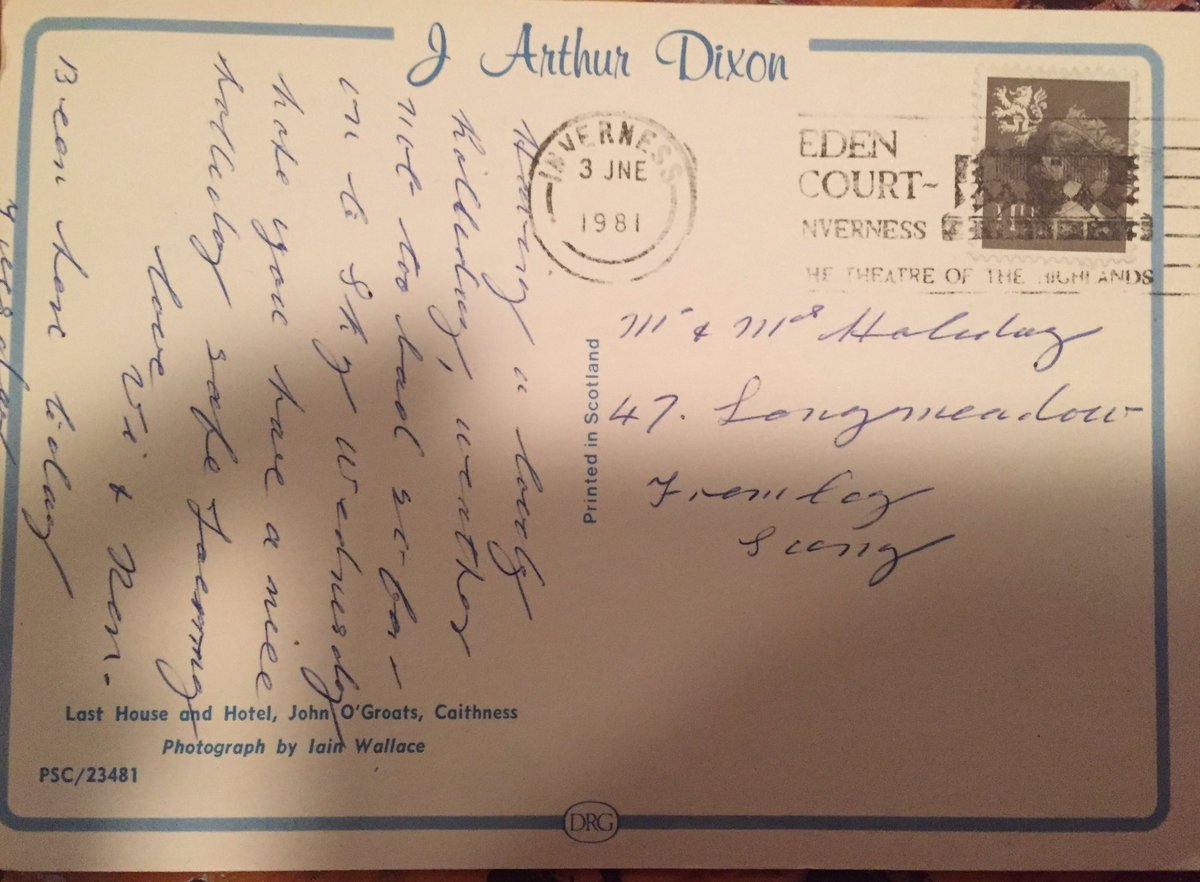 J Arthur Dixon
INVERNESS
3 JNE
1981
EDEN
COURT-
NVERNESS
HE THEATRE OF THE HIGHLANDS
Having a lovely
holliday, weather
not too bad so far
on to Sky Wednesday
hope you have a nice
holleday safe
love
Vi & Nen.
Been here today
Printed in Scotland
Mr & Mrs Holiday
47. Longmeadow
Frimley
Last House and Hotel, John O'Groats, Caithness
Photograph by Iain Wallace
PSC/23481
DRG